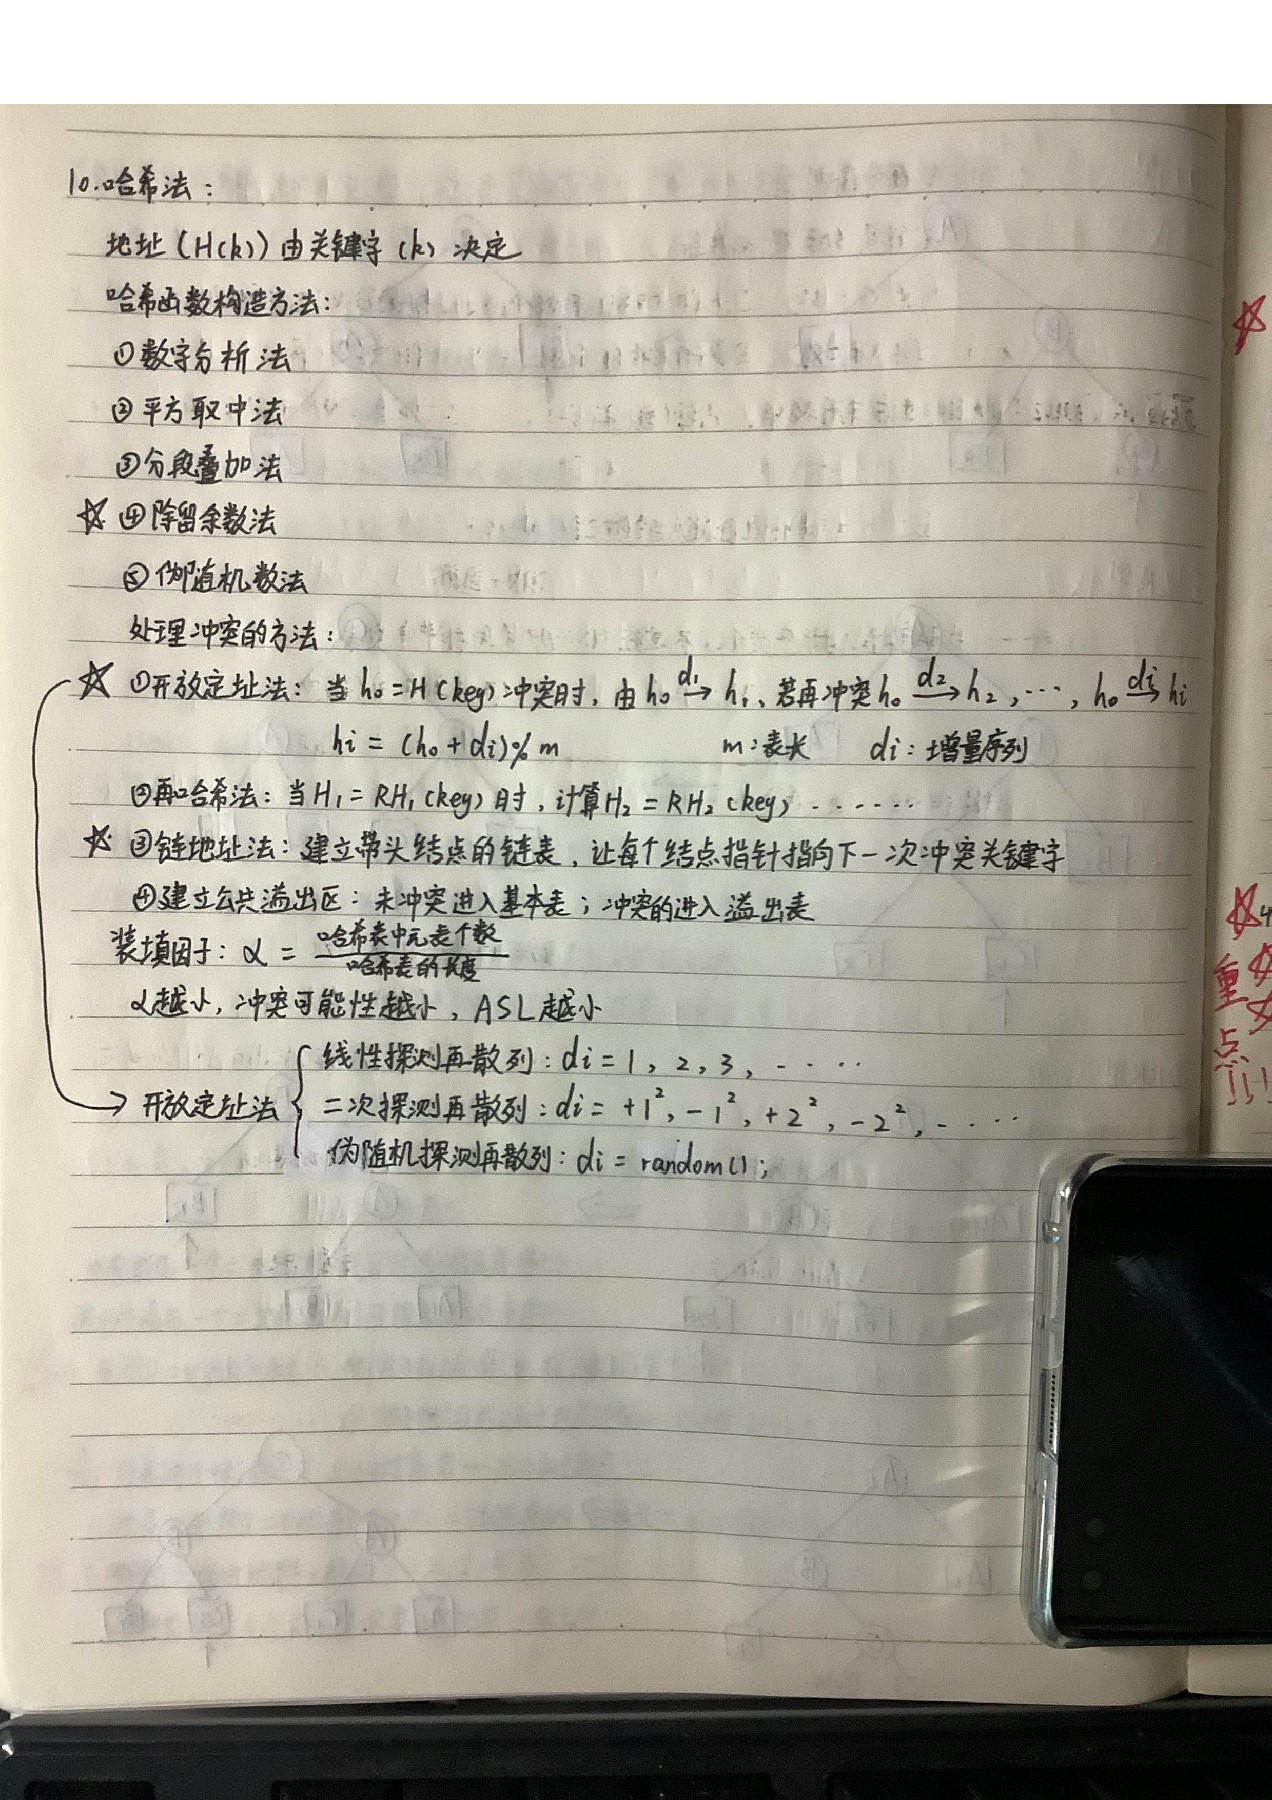 10.哈希法：
地址(H(k))由关键字(k)决定
哈希函数构造方法：
①数字分析法
②平方取中法
③分段叠加法
☆④除留余数法
⑤伪随机数法
处理冲突的方法：
☆①开放定址法：当h₀=H(key)冲突时，由h₀ d₁→ h₁、若再冲突h₀ d₂→ h₂，…，h₀ di→ hi
hi=(h₀+di)%m m：表长 di：增量序列
②再哈希法：当H₁=RH₁(key)时，计算H₂=RH₂(key)······
☆③链地址法：建立带头结点的链表，让每个结点指针指向下一次冲突关键字
④建立公共溢出区：未冲突进入基本表；冲突的进入溢出表
装填因子：α=哈希表中元表个数/哈希表的长度
α越小，冲突可能性越小，ASL越小
线性探测再散列：di=1，2，3，····
→开放定址法{二次探测再散列：di=+1²，-1²，+2²，-2²，····
伪随机探测再散列：di=random();
☆
☆4
重点!!!
☆
☆